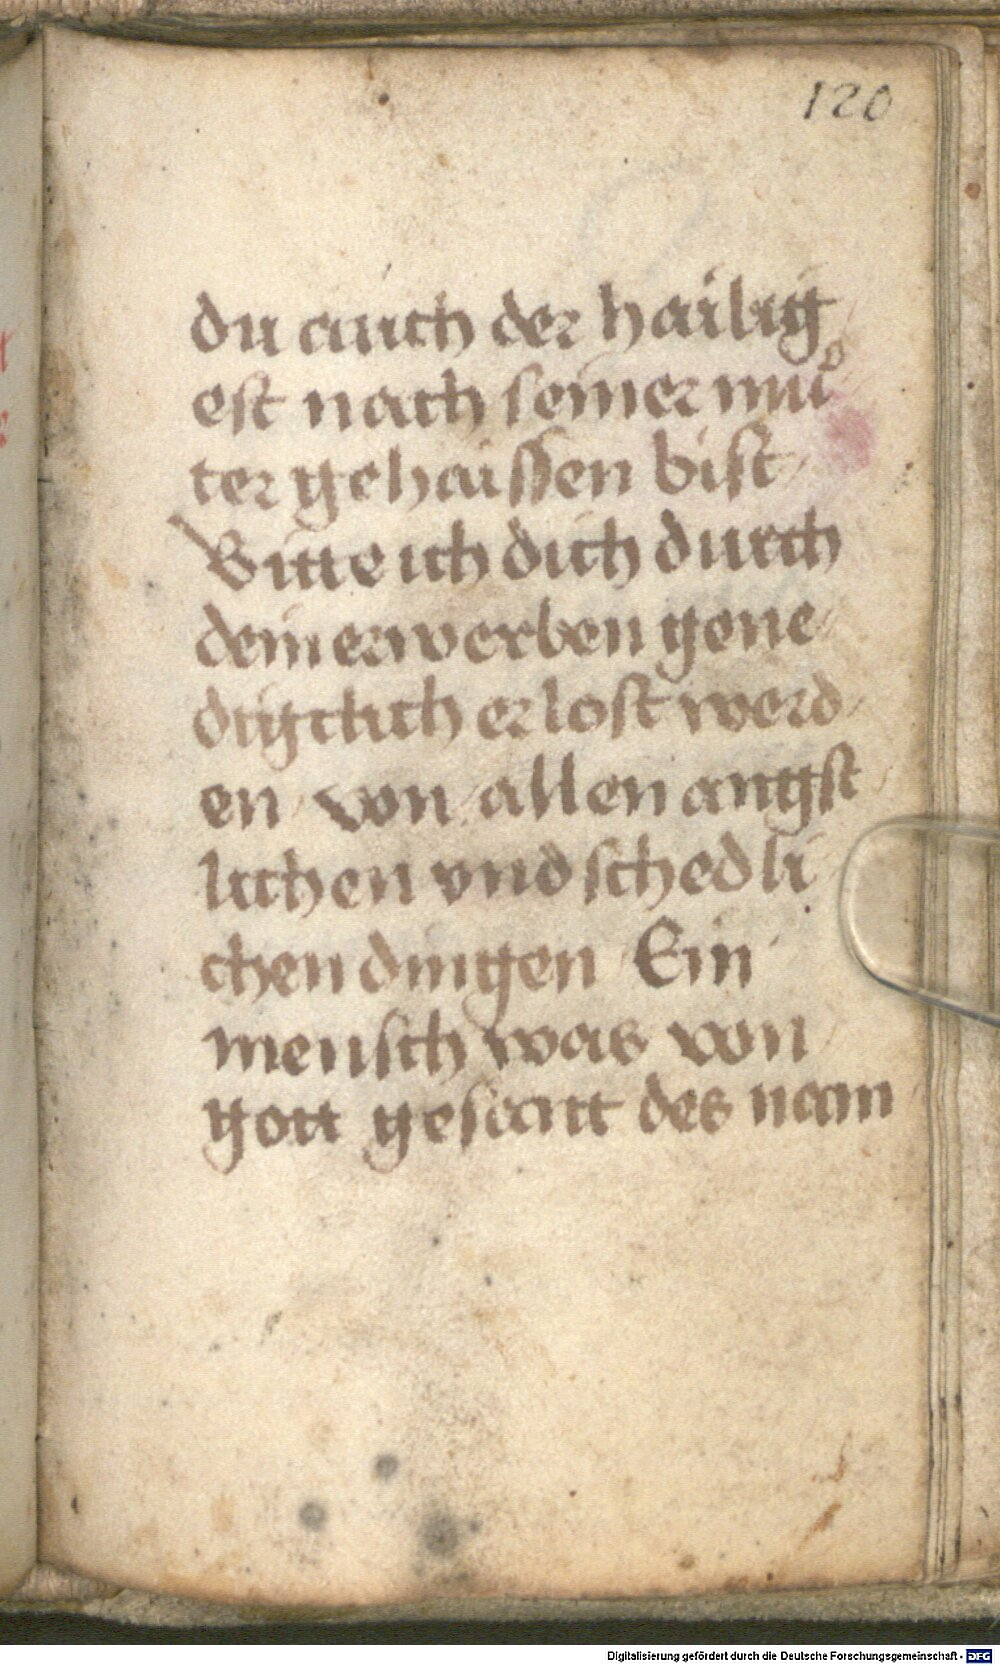 120
du auch der hailig
est nach seiner muͦ
ter gehaissen bist
Bitte ich dich durch
dein erwerben gene
digclich erlost werd
en von allen angst
lichen vnd schedli
chen dingen Ein
mensch was von
gott gesantt des nam
Digitalisierung gefördert durch die Deutsche Forschungsgemeinschaft - DFG